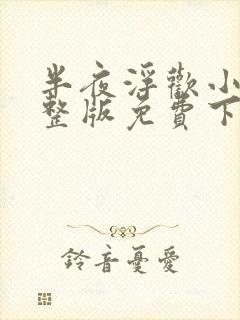 半夜浮歡小
整版免費下
鈴音憂愛